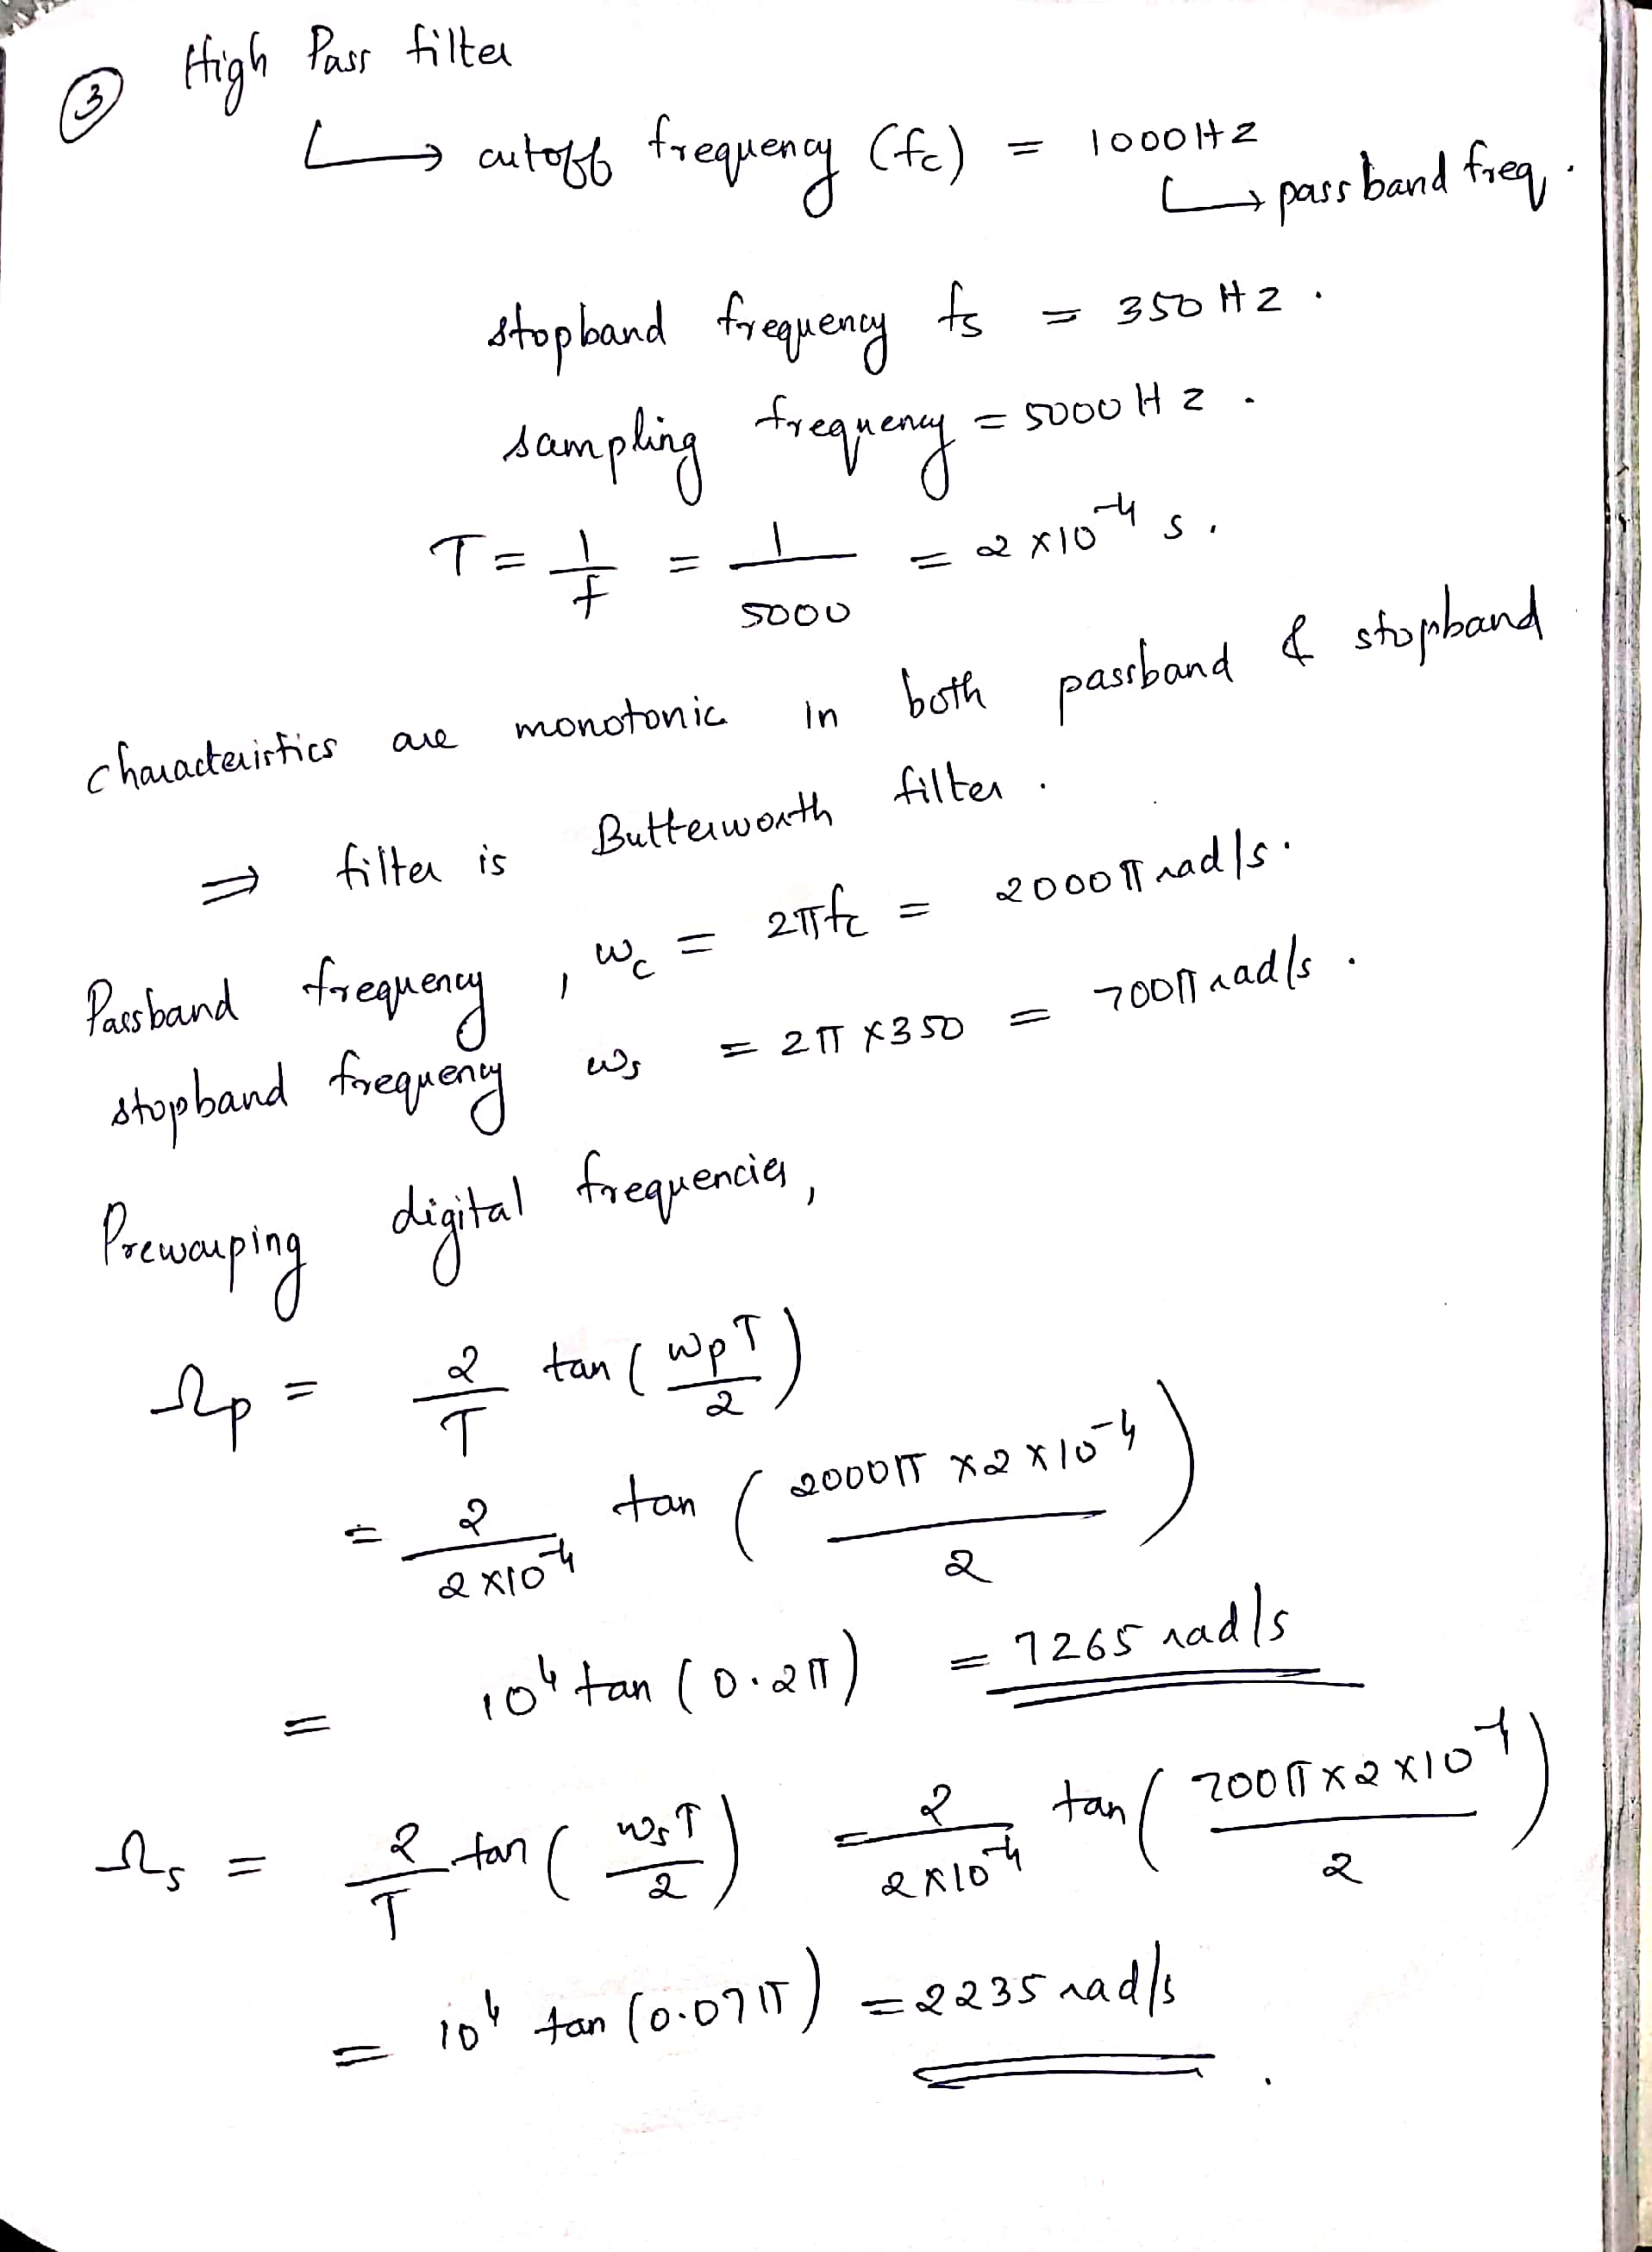 ③ High Pass filter
↳ cutoff frequency (fc) = 1000Hz
↳ passband freq.
stopband frequency fs = 350Hz.
sampling frequency = 5000Hz.
T = 1/f = 1/5000 = 2×10⁻⁴ s.
characteristics are monotonic in both passband & stopband
⇒ filter is Butterworth filter.
Passband frequency, wc = 2πfc = 2000π rad/s.
stopband frequency ws = 2π×350 = 700π rad/s.
Prewarping digital frequencies,
Ωp = 2/T tan(wpT/2)
= 2/(2×10⁻⁴) tan(2000π×2×10⁻⁴/2)
= 10⁴ tan(0.2π) = 7265 rad/s
Ωs = 2/T tan(wsT/2) = 2/(2×10⁻⁴) tan(700π×2×10⁻⁴/2)
= 10⁴ tan(0.07π) = 2235 rad/s.